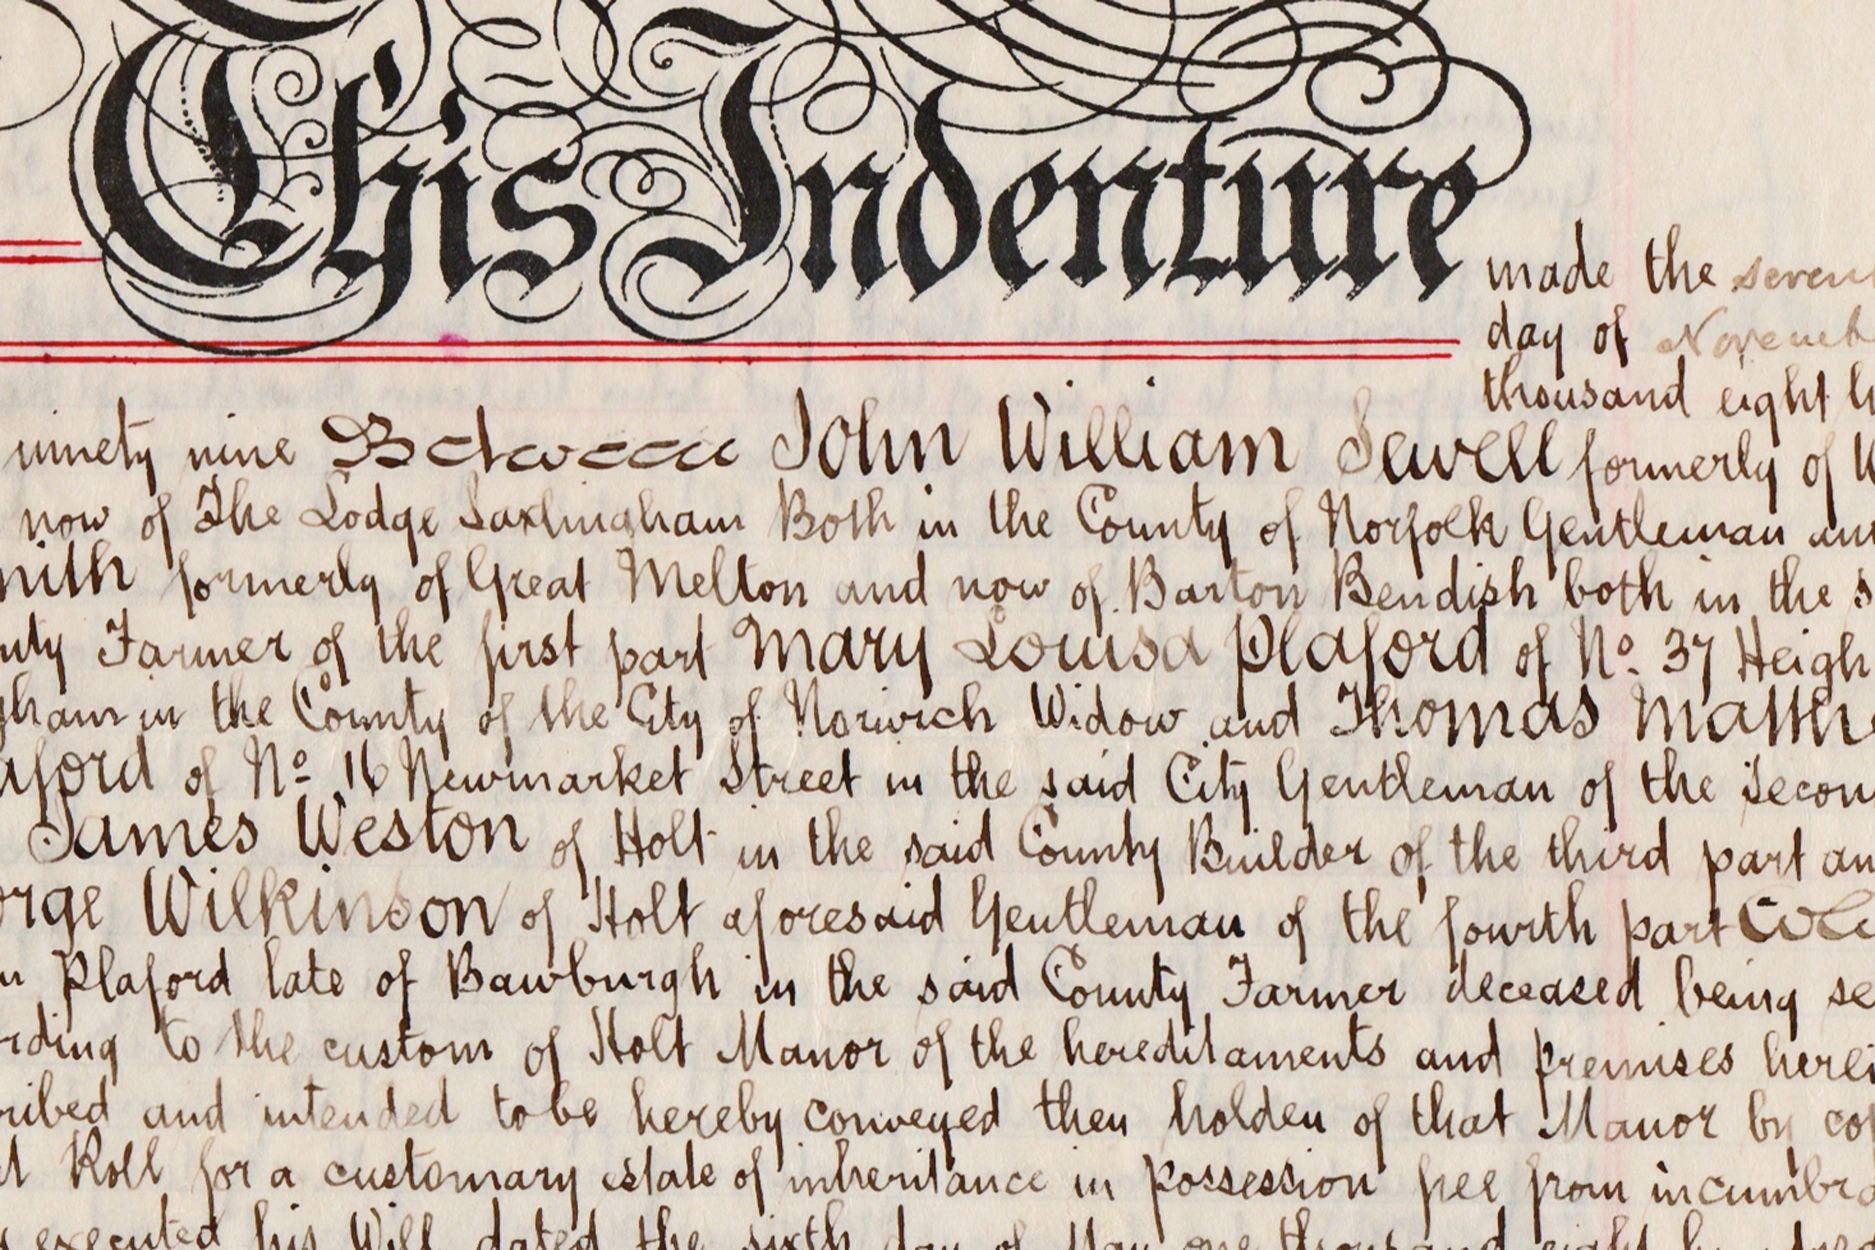 This Indenture
made the seven
day of Novemb
thousand eight h
ninety nine Between John William Sewell formerly of W
now of The Lodge Saxlingham Both in the County of Norfolk Gentleman an
mith formerly of Great Melton and now of Barton Bendish both in the s
nty Farmer of the first part Mary Louisa Playford of No. 37 Heigh
gham in the County of the City of Norwich Widow and Thomas Matthe
ayford of No. 16 Newmarket Street in the said City Gentleman of the Secon
James Weston of Holt in the said County Builder of the third part an
orge Wilkinson of Holt aforesaid Gentleman of the fourth part
Playford late of Bawburgh in the said County Farmer deceased being se
rding to the custom of Holt Manor of the hereditaments and premises herei
ribed and intended to be hereby conveyed then holden of that Manor by cop
Roll for a customary estate of inheritance in possession free from incumbra
executed his Will dated the sixth day of May one thousand eight